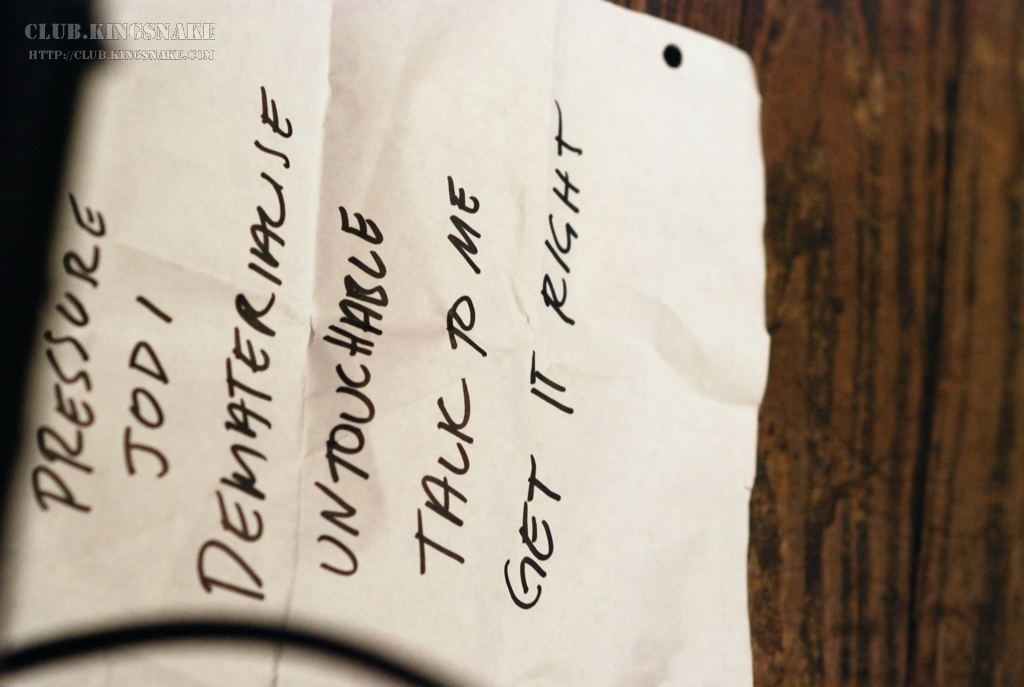 CLUB.KINGSNAKE
HTTP://CLUB.KINGSNAKE.COM
PRESSURE
JODI
DEMATERIALISE
UNTOUCHABLE
TALK TO ME
GET IT RIGHT